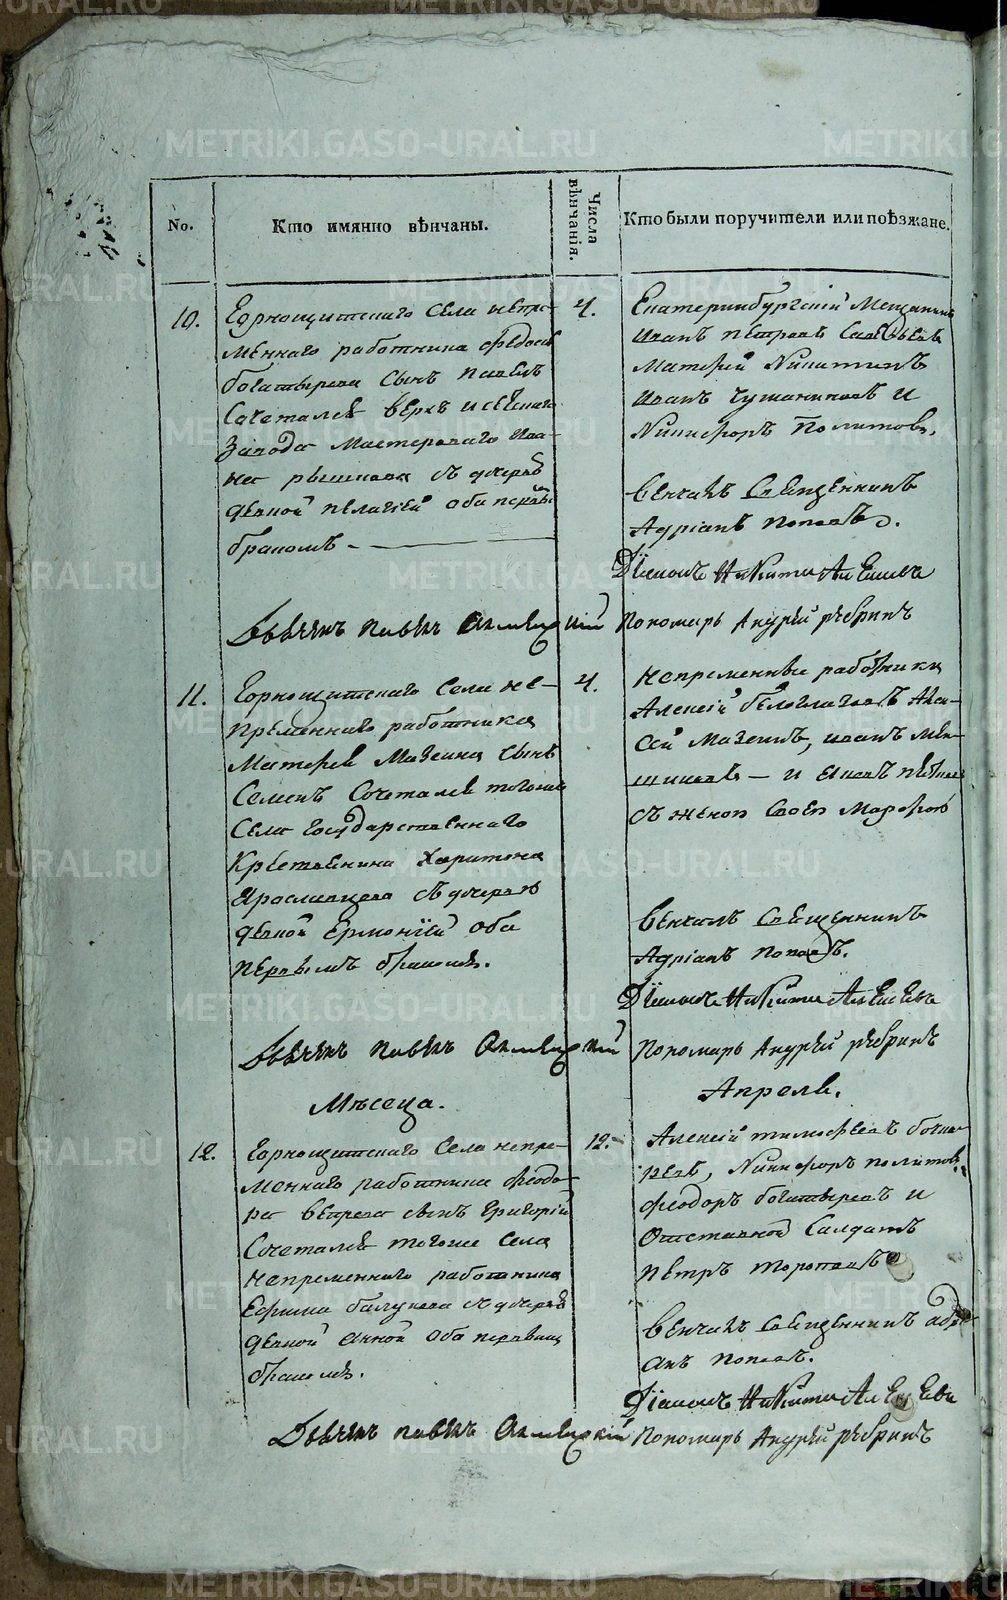 No.
Кто имянно вѣнчаны.
Числа вѣнчанія.
Кто были поручители или поѣзжане.
10.
Горнощитскаго села непре-
меннаго работника Федосея
богатырева сынъ павелъ
Сочетался верхъ исецкаго
Завода мастероваго Ива-
на съ дочерью
девкой пелагией оба первы
бракомъ
4.
Екатеринбургскій Мещанинъ
иванъ петровъ
матфей Никитинъ
иванъ и
Никифоръ политовъ.
венчалъ Священникъ
Адріанъ поповъ.
Діаконъ Никита Алексеевъ
Дьячекъ павелъ
Пономарь Андрей рябринъ
11.
Горнощитскаго Села не-
пременнаго работника
Матфея Мазеина сынъ
Семенъ Сочетался тогоже
Села государственнаго
Крестьянина Харитона
Ярославцова съ дочерью
девкой Ермонией оба
первымъ бракомъ.
4.
непременные работники
Алексей белоглазовъ Алек-
сей Мазеинъ, иванъ мен-
шиковъ и
съ женою своею Марфою
венчалъ Священникъ
Адріанъ поповъ.
Діаконъ Никита Алексеевъ
Дьячекъ павелъ
Пономарь Андрей рябринъ
Мѣсеца.
Апреля.
12.
Горнощитскаго Села непре-
меннаго работника феодо-
ра сынъ григорій
Сочетался тогоже Села
непременнаго работника
Ефима съ дочерью
девкой Анной оба первымъ
бракомъ.
12.
Алексей тимофеевъ
Никифоръ политовъ,
феодоръ богатыревъ и
Отставной Салдатъ
петръ
венчалъ Священникъ адрі-
анъ поповъ.
Діаконъ Никита Алексеевъ
Дьячекъ павелъ
Пономарь Андрей рябринъ
METRIKI.GASO-URAL.RU